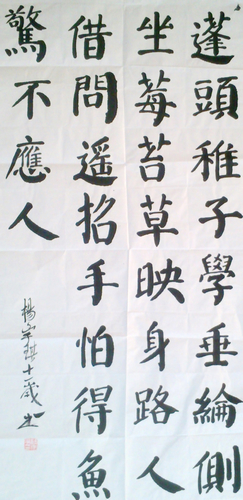 蓬頭稚子學垂綸側
坐莓苔草映身路人
借問遙招手怕得魚
驚不應人
楊琪十歲书